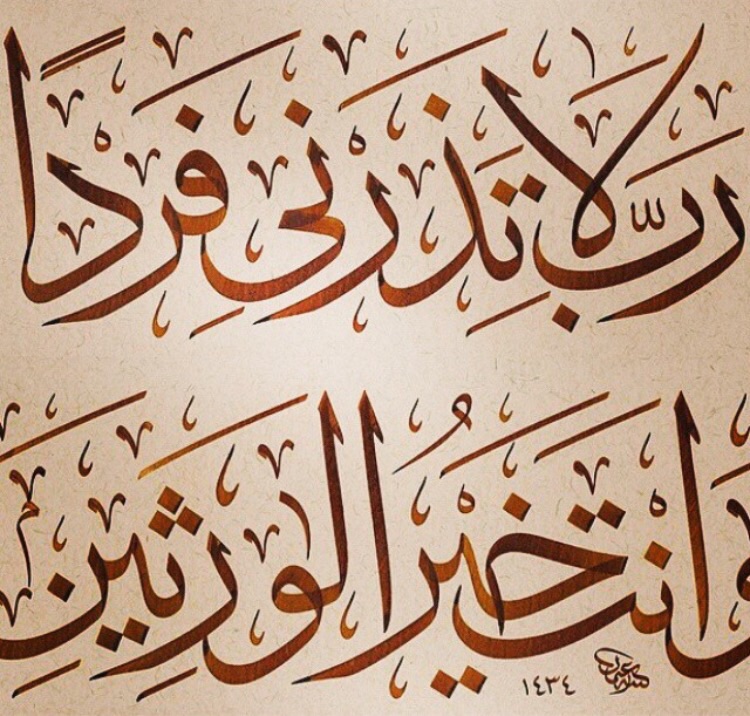 رَبِّ لَا تَذَرْنِي فَرْدًا
وَأَنتَ خَيْرُ الْوَٰرِثِينَ
١٤٣٤